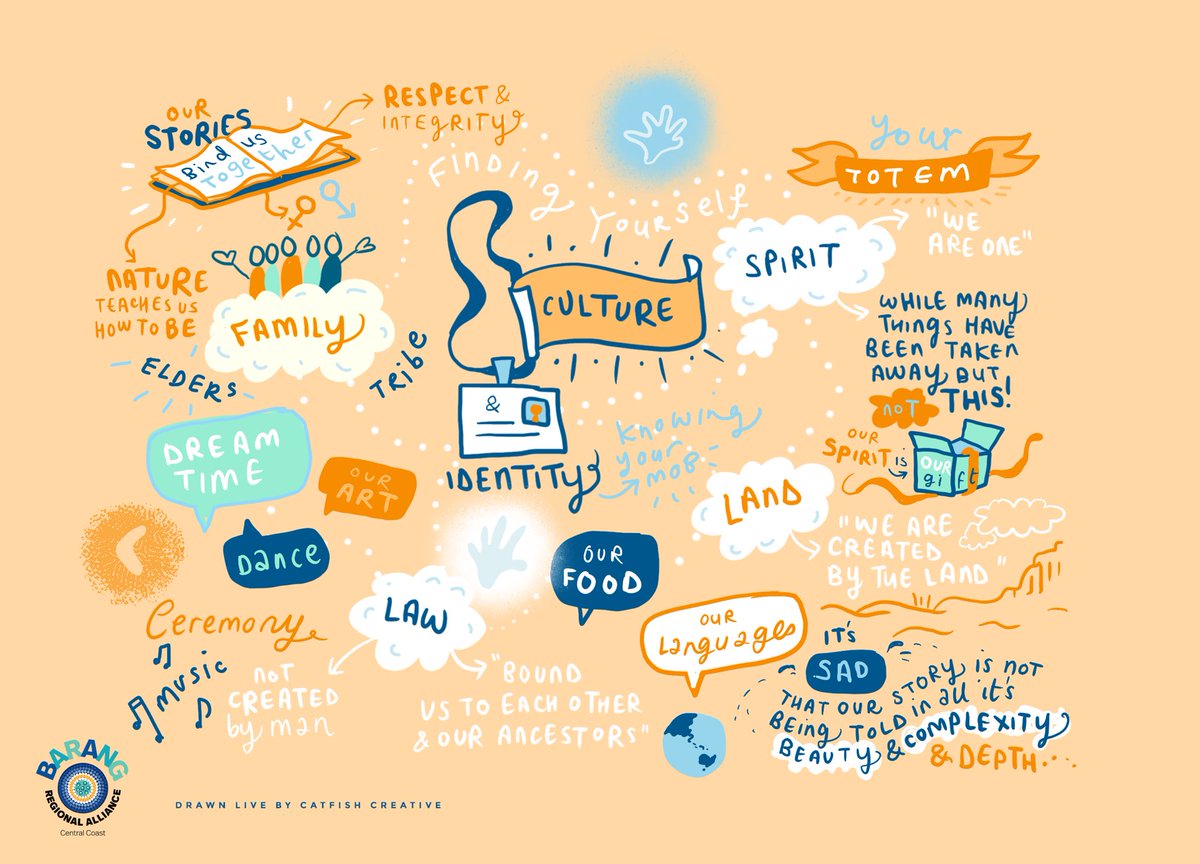 OUR
STORIES
Bind us
Together
RESPECT &
INTEGRITY
NATURE
TEACHES US
HOW TO BE
FAMILY
ELDERS
TRIBE
Finding
Yourself
CULTURE
&
IDENTITY
Knowing
your
mob
Your
TOTEM
SPIRIT
"WE
ARE ONE"
WHILE MANY
THINGS HAVE
BEEN TAKEN
AWAY BUT
NOT THIS!
OUR
SPIRIT IS
OUR
gift
LAND
"WE ARE
CREATED
BY THE LAND"
DREAM
TIME
OUR
ART
Dance
Ceremony
MUSIC
LAW
NOT
CREATED
by man
"BOUND
US TO EACH OTHER
& OUR ANCESTORS"
OUR
FOOD
OUR
Languages
IT'S
SAD
THAT OUR STORY IS NOT
BEING TOLD IN all it's
BEAUTY & COMPLEXITY
& DEPTH...
BARANG
REGIONAL ALLIANCE
Central Coast
DRAWN LIVE BY CATFISH CREATIVE